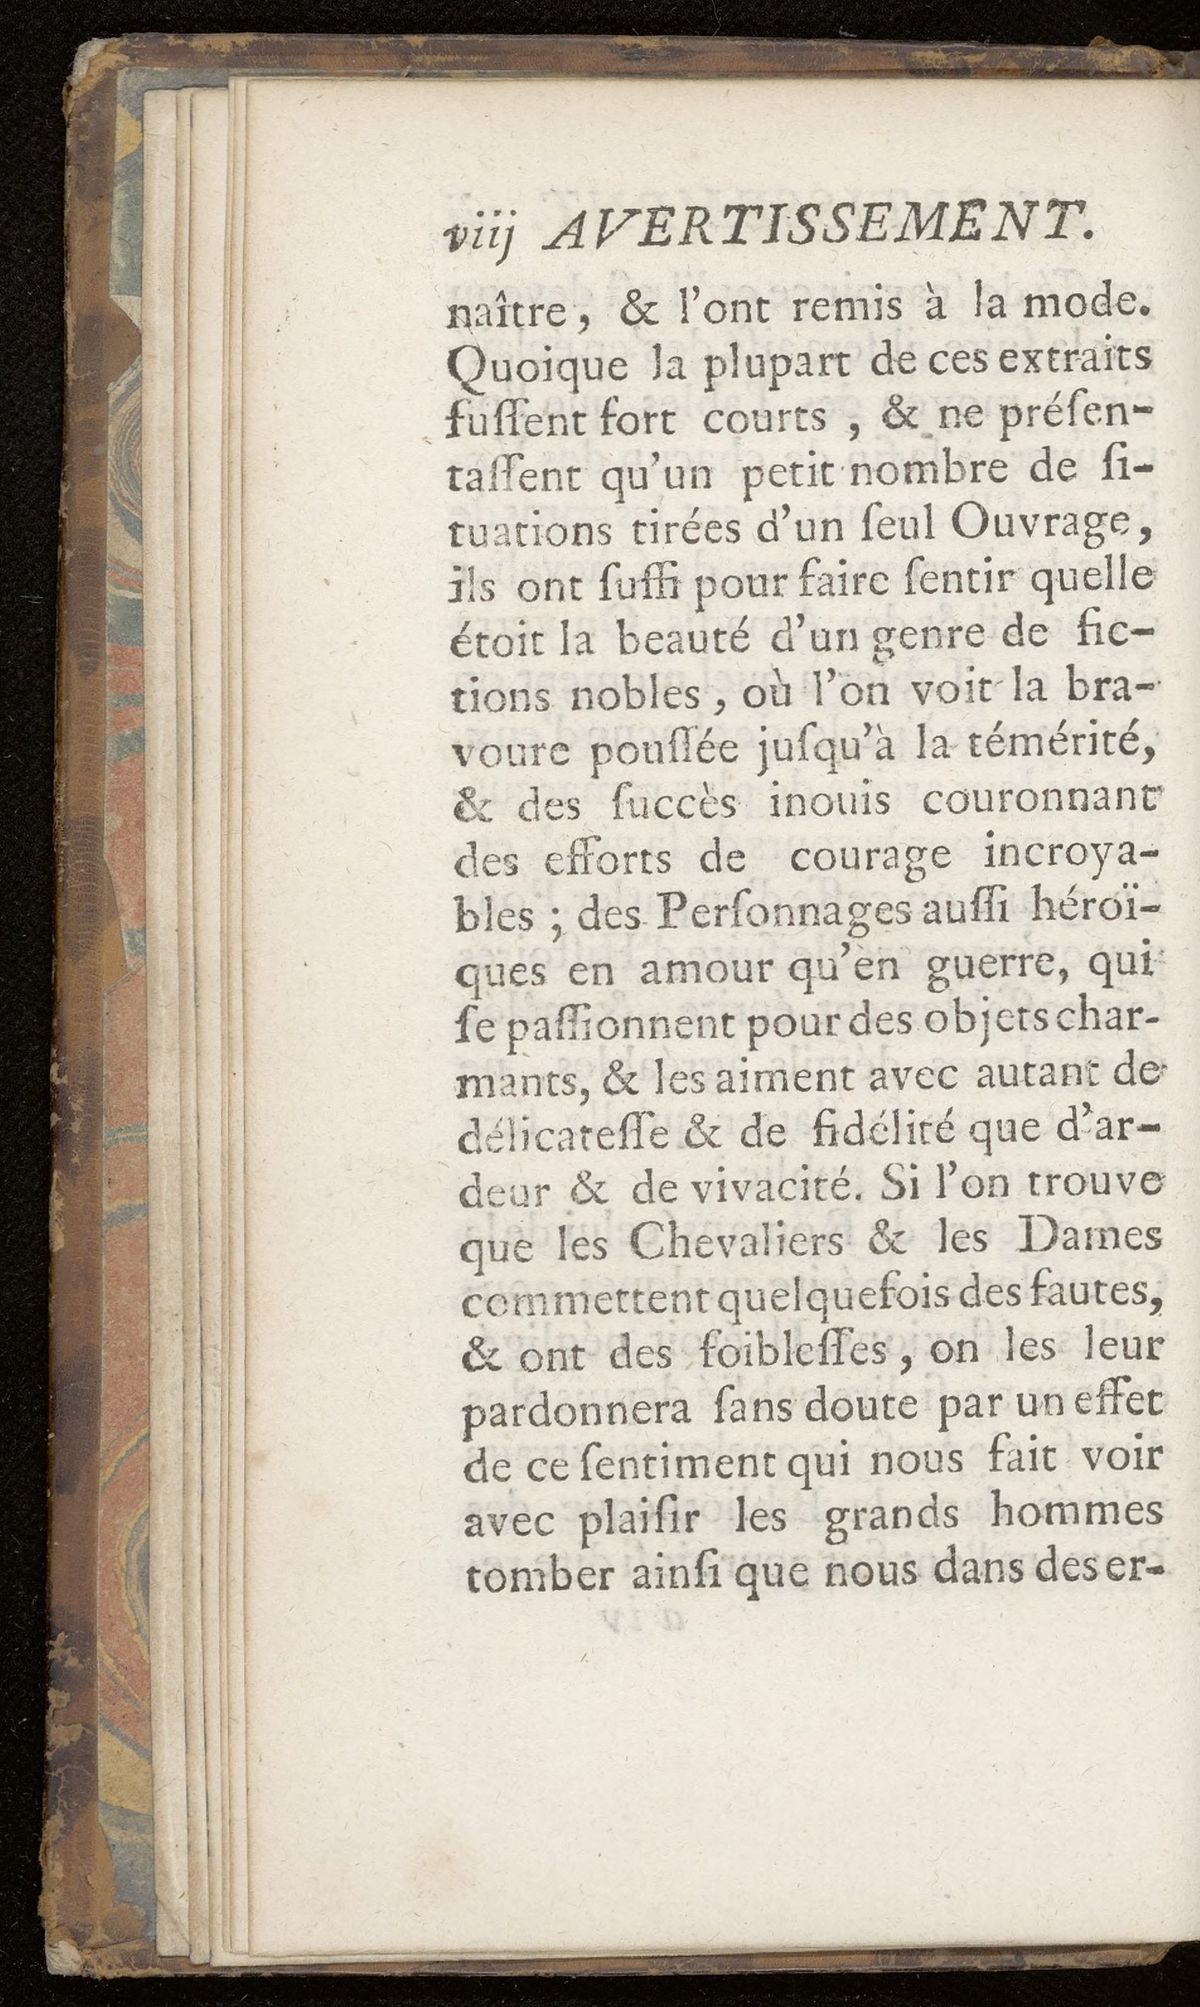 viij AVERTISSEMENT.
naître, & l'ont remis à la mode.
Quoique la plupart de ces extraits
fuſſent fort courts, & ne préſen-
taſſent qu'un petit nombre de ſi-
tuations tirées d'un ſeul Ouvrage,
ils ont ſuffi pour faire ſentir quelle
étoit la beauté d'un genre de fic-
tions nobles, où l'on voit la bra-
voure pouſſée juſqu'à la témérité,
& des ſuccès inouis couronnant
des efforts de courage incroya-
bles ; des Perſonnages auſſi héroï-
ques en amour qu'en guerre, qui
ſe paſſionnent pour des objets char-
mants, & les aiment avec autant de
délicateſſe & de fidélité que d'ar-
deur & de vivacité. Si l'on trouve
que les Chevaliers & les Dames
commettent quelquefois des fautes,
& ont des foibleſſes, on les leur
pardonnera ſans doute par un effet
de ce ſentiment qui nous fait voir
avec plaiſir les grands hommes
tomber ainſi que nous dans des er-